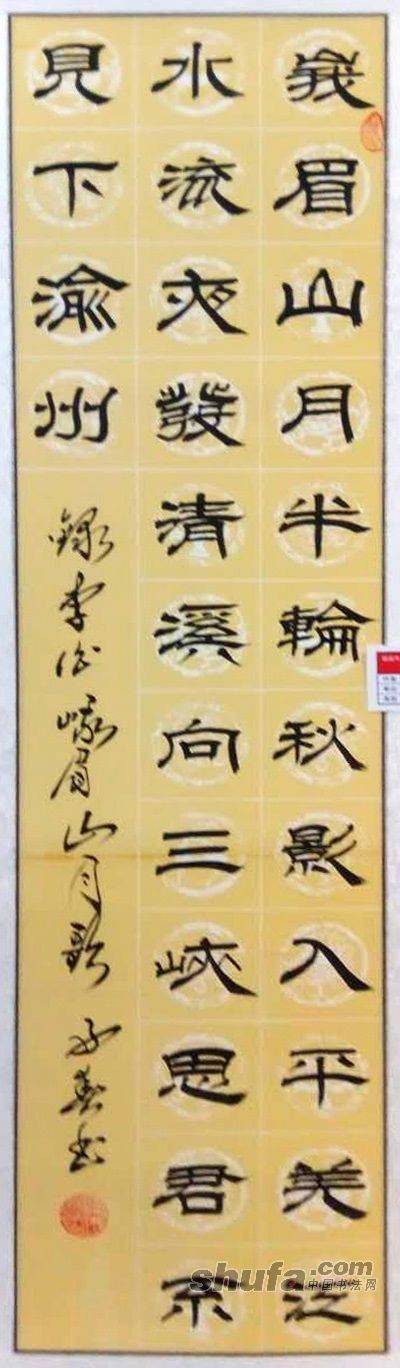 峩眉山月半輪秋影入平羌江
水流夜發清溪向三峽思君不
見下渝州
錄李白峨眉山月歌 书
shufa.com
中国书法网